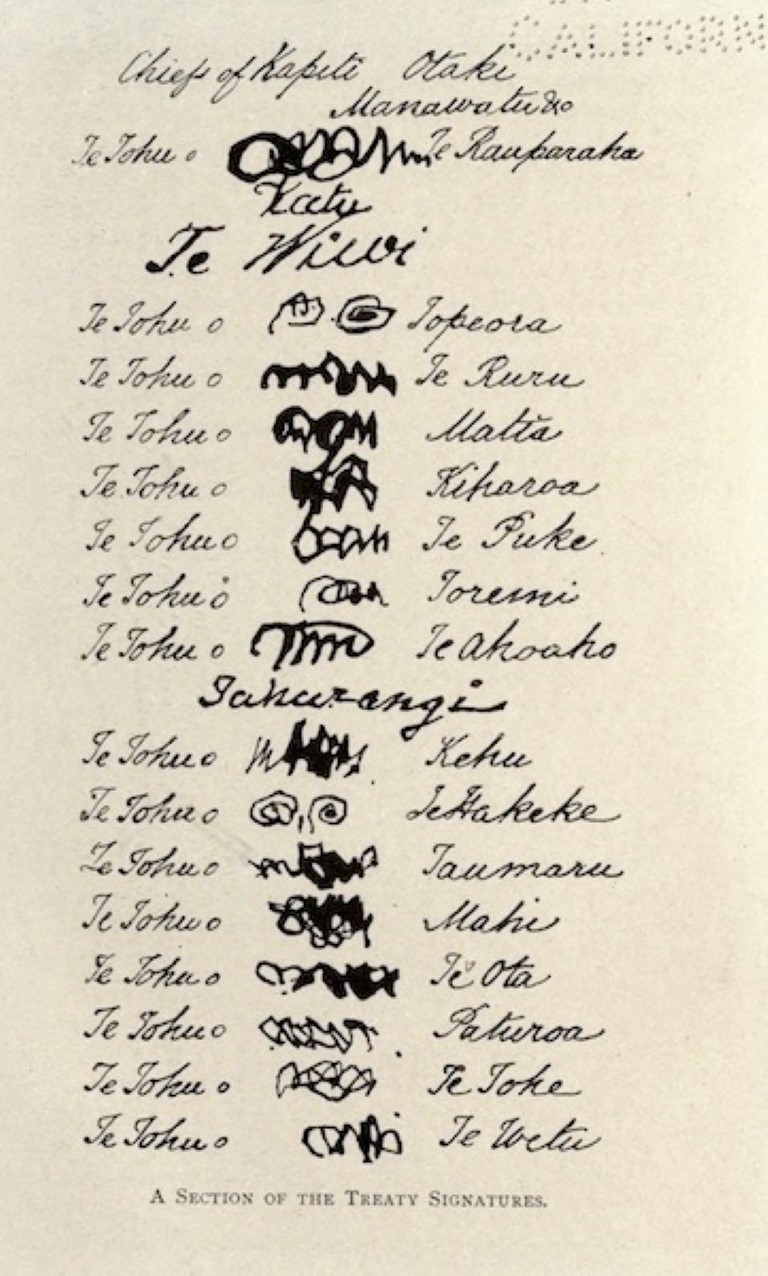 CALIFORN
Chiefs of Kapiti Otaki
Manawatu &c
Te Tohu o Te Rauparaha
Katu
Te Wiwi
Te Tohu o Topeora
Te Tohu o Te Ruru
Te Tohu o Matia
Te Tohu o Kiharoa
Te Tohu o Te Puke
Te Tohu o Toremi
Te Tohu o Te Ahoaho
Tahurangi
Te Tohu o Kehu
Te Tohu o Te Hakeke
Te Tohu o Taumaru
Te Tohu o Mahi
Te Tohu o Te Ota
Te Tohu o Paturoa
Te Tohu o Te Toke
Te Tohu o Te Wetu
A Section of the Treaty Signatures.